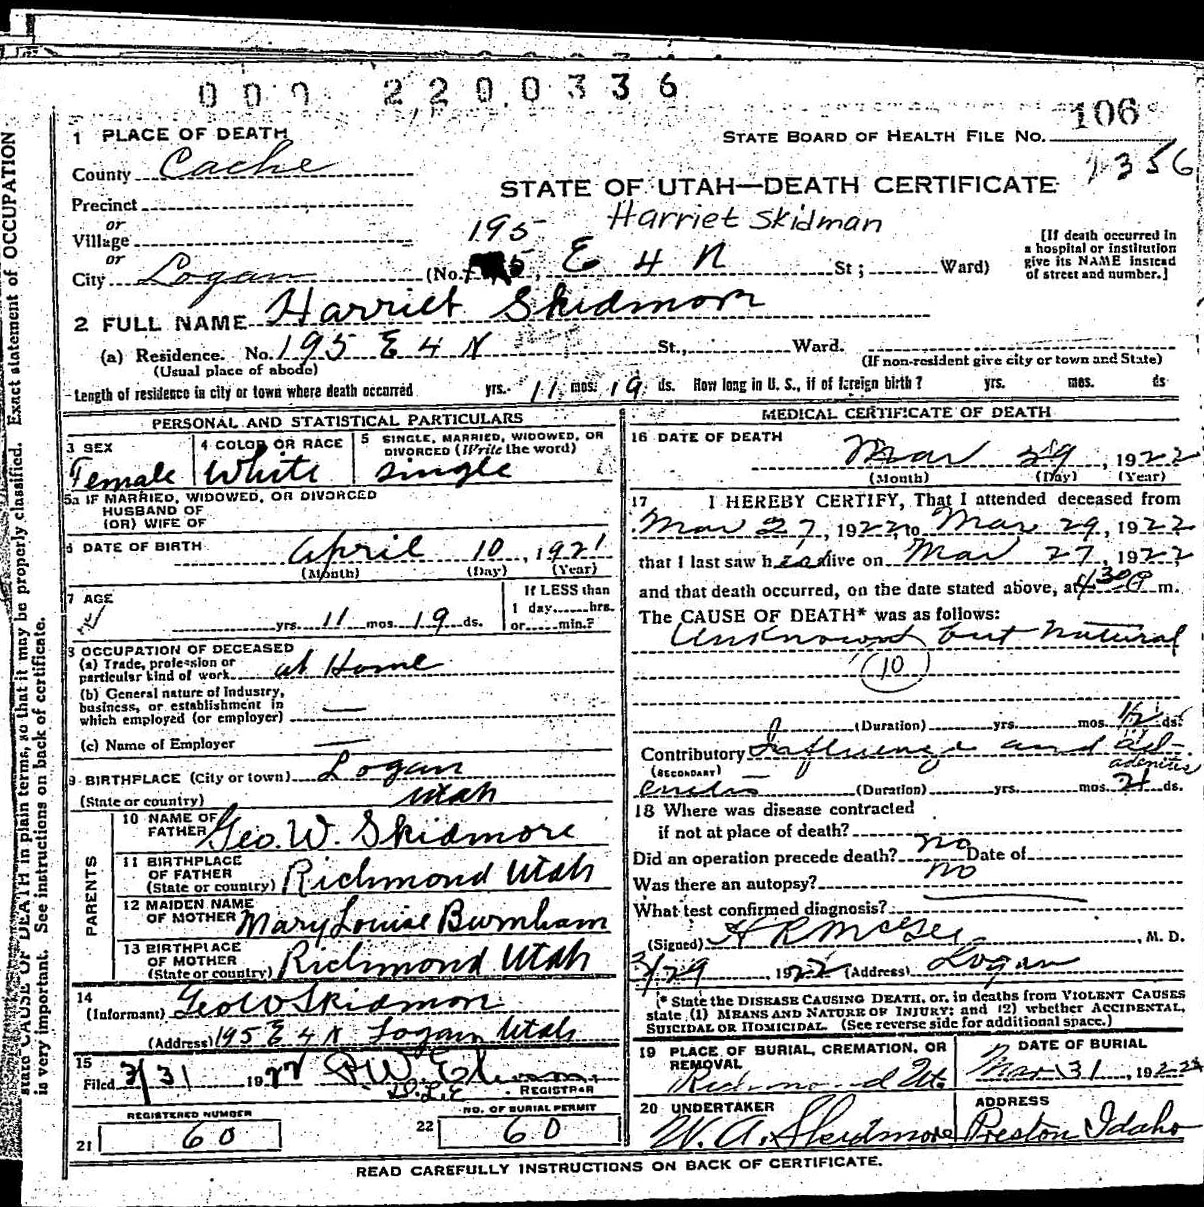 000 2200336
106
1 PLACE OF DEATH
STATE BOARD OF HEALTH FILE NO.
County Cache
356
STATE OF UTAH—DEATH CERTIFICATE
Precinct
Harriet Skidman
or
Village
195
or
City Logan (No. E 4 N St; Ward)
[If death occurred in
a hospital or institution
give its NAME instead
of street and number.]
2 FULL NAME Harriet Skidmore
(a) Residence. No. 195 E 4 N St., Ward.
(Usual place of abode)
(If non-resident give city or town and State)
Length of residence in city or town where death occurred yrs. 11 mos. 19 ds. How long in U. S., if of foreign birth? yrs. mos. ds
PERSONAL AND STATISTICAL PARTICULARS
3 SEX
Female
4 COLOR OR RACE
White
5 SINGLE, MARRIED, WIDOWED, OR
DIVORCED (Write the word)
single
5a IF MARRIED, WIDOWED, OR DIVORCED
HUSBAND OF
(OR) WIFE OF
6 DATE OF BIRTH April 10, 1921
(Month) (Day) (Year)
7 AGE
yrs. 11 mos. 19 ds.
If LESS than
1 day hrs.
or min.?
8 OCCUPATION OF DECEASED
(a) Trade, profession or
particular kind of work at Home
(b) General nature of Industry,
business, or establishment in
which employed (or employer) —
(c) Name of Employer —
9 BIRTHPLACE (City or town) Logan
(State or country) Utah
PARENTS
10 NAME OF
FATHER Geo. W. Skidmore
11 BIRTHPLACE
OF FATHER
(State or country) Richmond Utah
12 MAIDEN NAME
OF MOTHER Mary Louise Burnham
13 BIRTHPLACE
OF MOTHER
(State or country) Richmond Utah
14
(Informant) Geo W Skidmore
(Address) 195 E 4 N Logan Utah
15
Filed 3/31 1922
REGISTRAR
REGISTERED NUMBER
21 60
NO. OF BURIAL PERMIT
22 60
MEDICAL CERTIFICATE OF DEATH
16 DATE OF DEATH
Mar 29, 1922
(Month) (Day) (Year)
17 I HEREBY CERTIFY, That I attended deceased from
Mar 27, 1922, to Mar 29, 1922
that I last saw h alive on Mar 27, 1922,
and that death occurred, on the date stated above, at 4 30 P m.
The CAUSE OF DEATH* was as follows:
Unknown but natural
10
(Duration) yrs. mos. 1/2 ds.
Contributory Influenza and
adenitis
(SECONDARY)
(Duration) yrs. mos. 21 ds.
18 Where was disease contracted
if not at place of death?
Did an operation precede death? no Date of
Was there an autopsy? no
What test confirmed diagnosis?
(Signed) H R McGee, M. D.
3/29 1922 (Address) Logan
(* State the DISEASE CAUSING DEATH, or, in deaths from VIOLENT CAUSES
state (1) MEANS AND NATURE OF INJURY; and (2) whether ACCIDENTAL,
SUICIDAL OR HOMICIDAL. (See reverse side for additional space.)
19 PLACE OF BURIAL, CREMATION, OR
REMOVAL
Richmond Ut.
DATE OF BURIAL
Mar 31, 1922
20 UNDERTAKER
W. A. Skidmore
ADDRESS
Preston Idaho
READ CAREFULLY INSTRUCTIONS ON BACK OF CERTIFICATE.
state CAUSE OF DEATH in plain terms, so that it may be properly classified. Exact statement of OCCUPATION
is very important. See instructions on back of certificate.